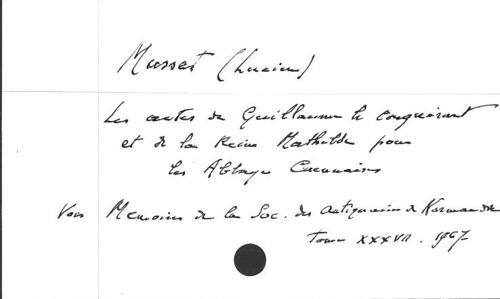 Musset (Lucien)
Les actes de Guillaume le conquérant
et de la Reine Mathilde pour
les Abbayes Caennaises
Voir Memoires de la Soc. des antiquaires de Normandie
Tome XXXVII. 1967-